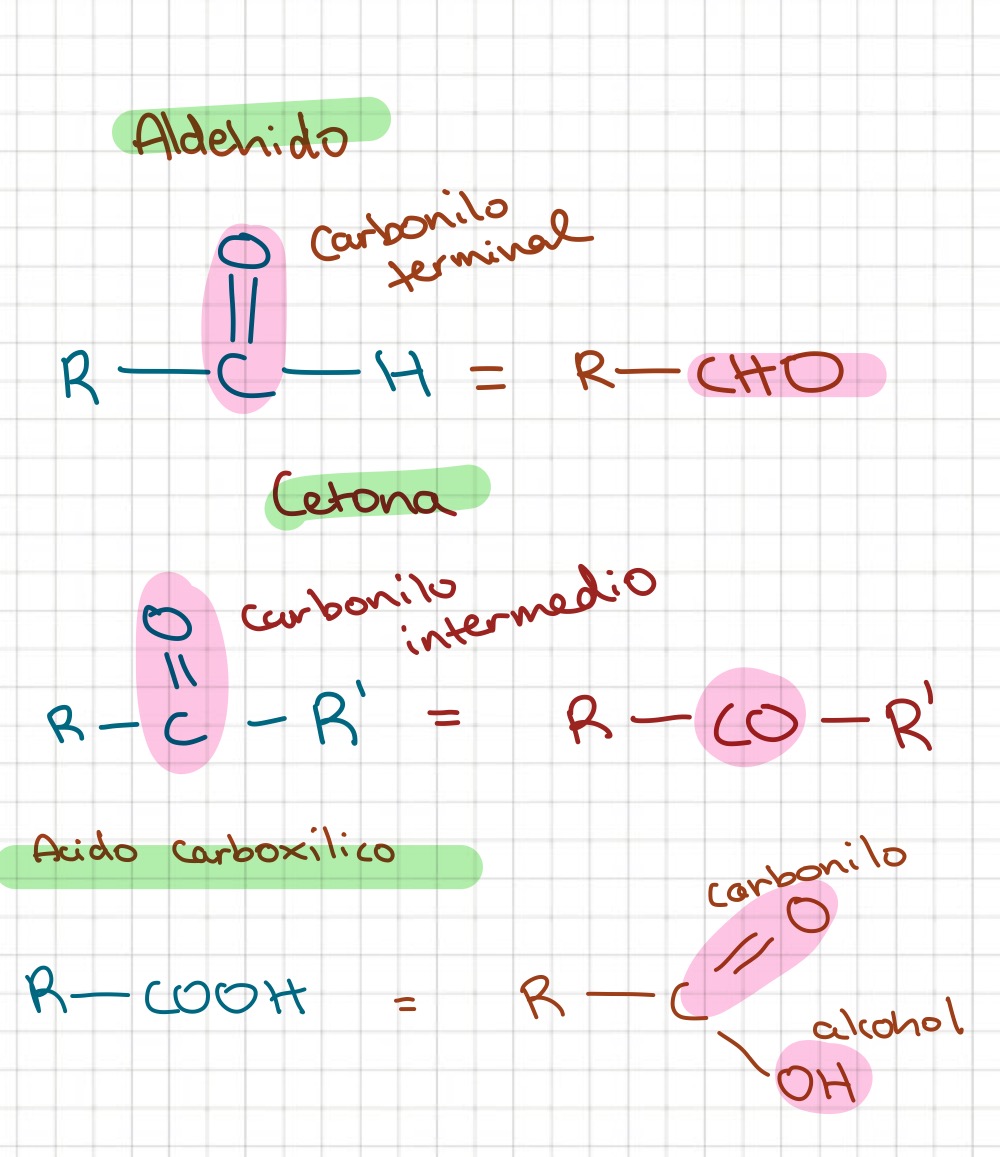 Aldehido
Carbonilo
terminal
O
||
R — C — H = R — CHO
Cetona
carbonilo
intermedio
O
||
R — C — R' = R — CO — R'
Acido Carboxilico
carbonilo
O
//
R — COOH = R — C
alcohol
\
OH